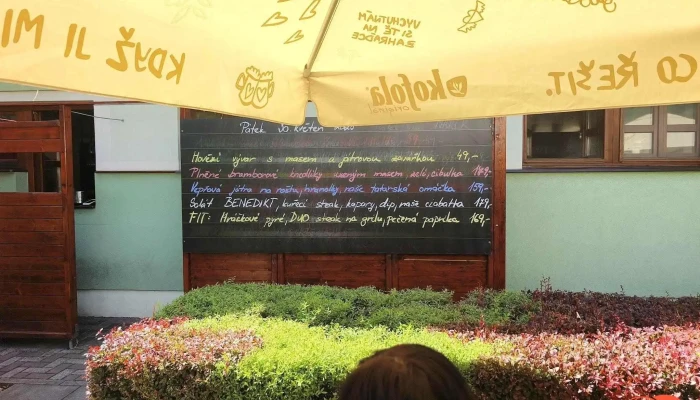 KDYŽ JI MI
VYCHUTNÁM
SI TĚ NA
ZAHRÁDCE
Kofola
CO ŘEŠIT.
Pátek 30 květen
Hovězí vývar s masem a játrovou zavářkou 49,-
Plněné bramborové knedlíky uzeným masem, zelí, cibulka
Vepřová játra na roštu, hranolky, naše tatarská omáčka 159,-
Salát BENEDIKT, kuřecí steak, kapary, dip, naše ciabatta 179,-
FIT: Hráškové pyré, DUO steak na grilu, pečená paprika 169,-